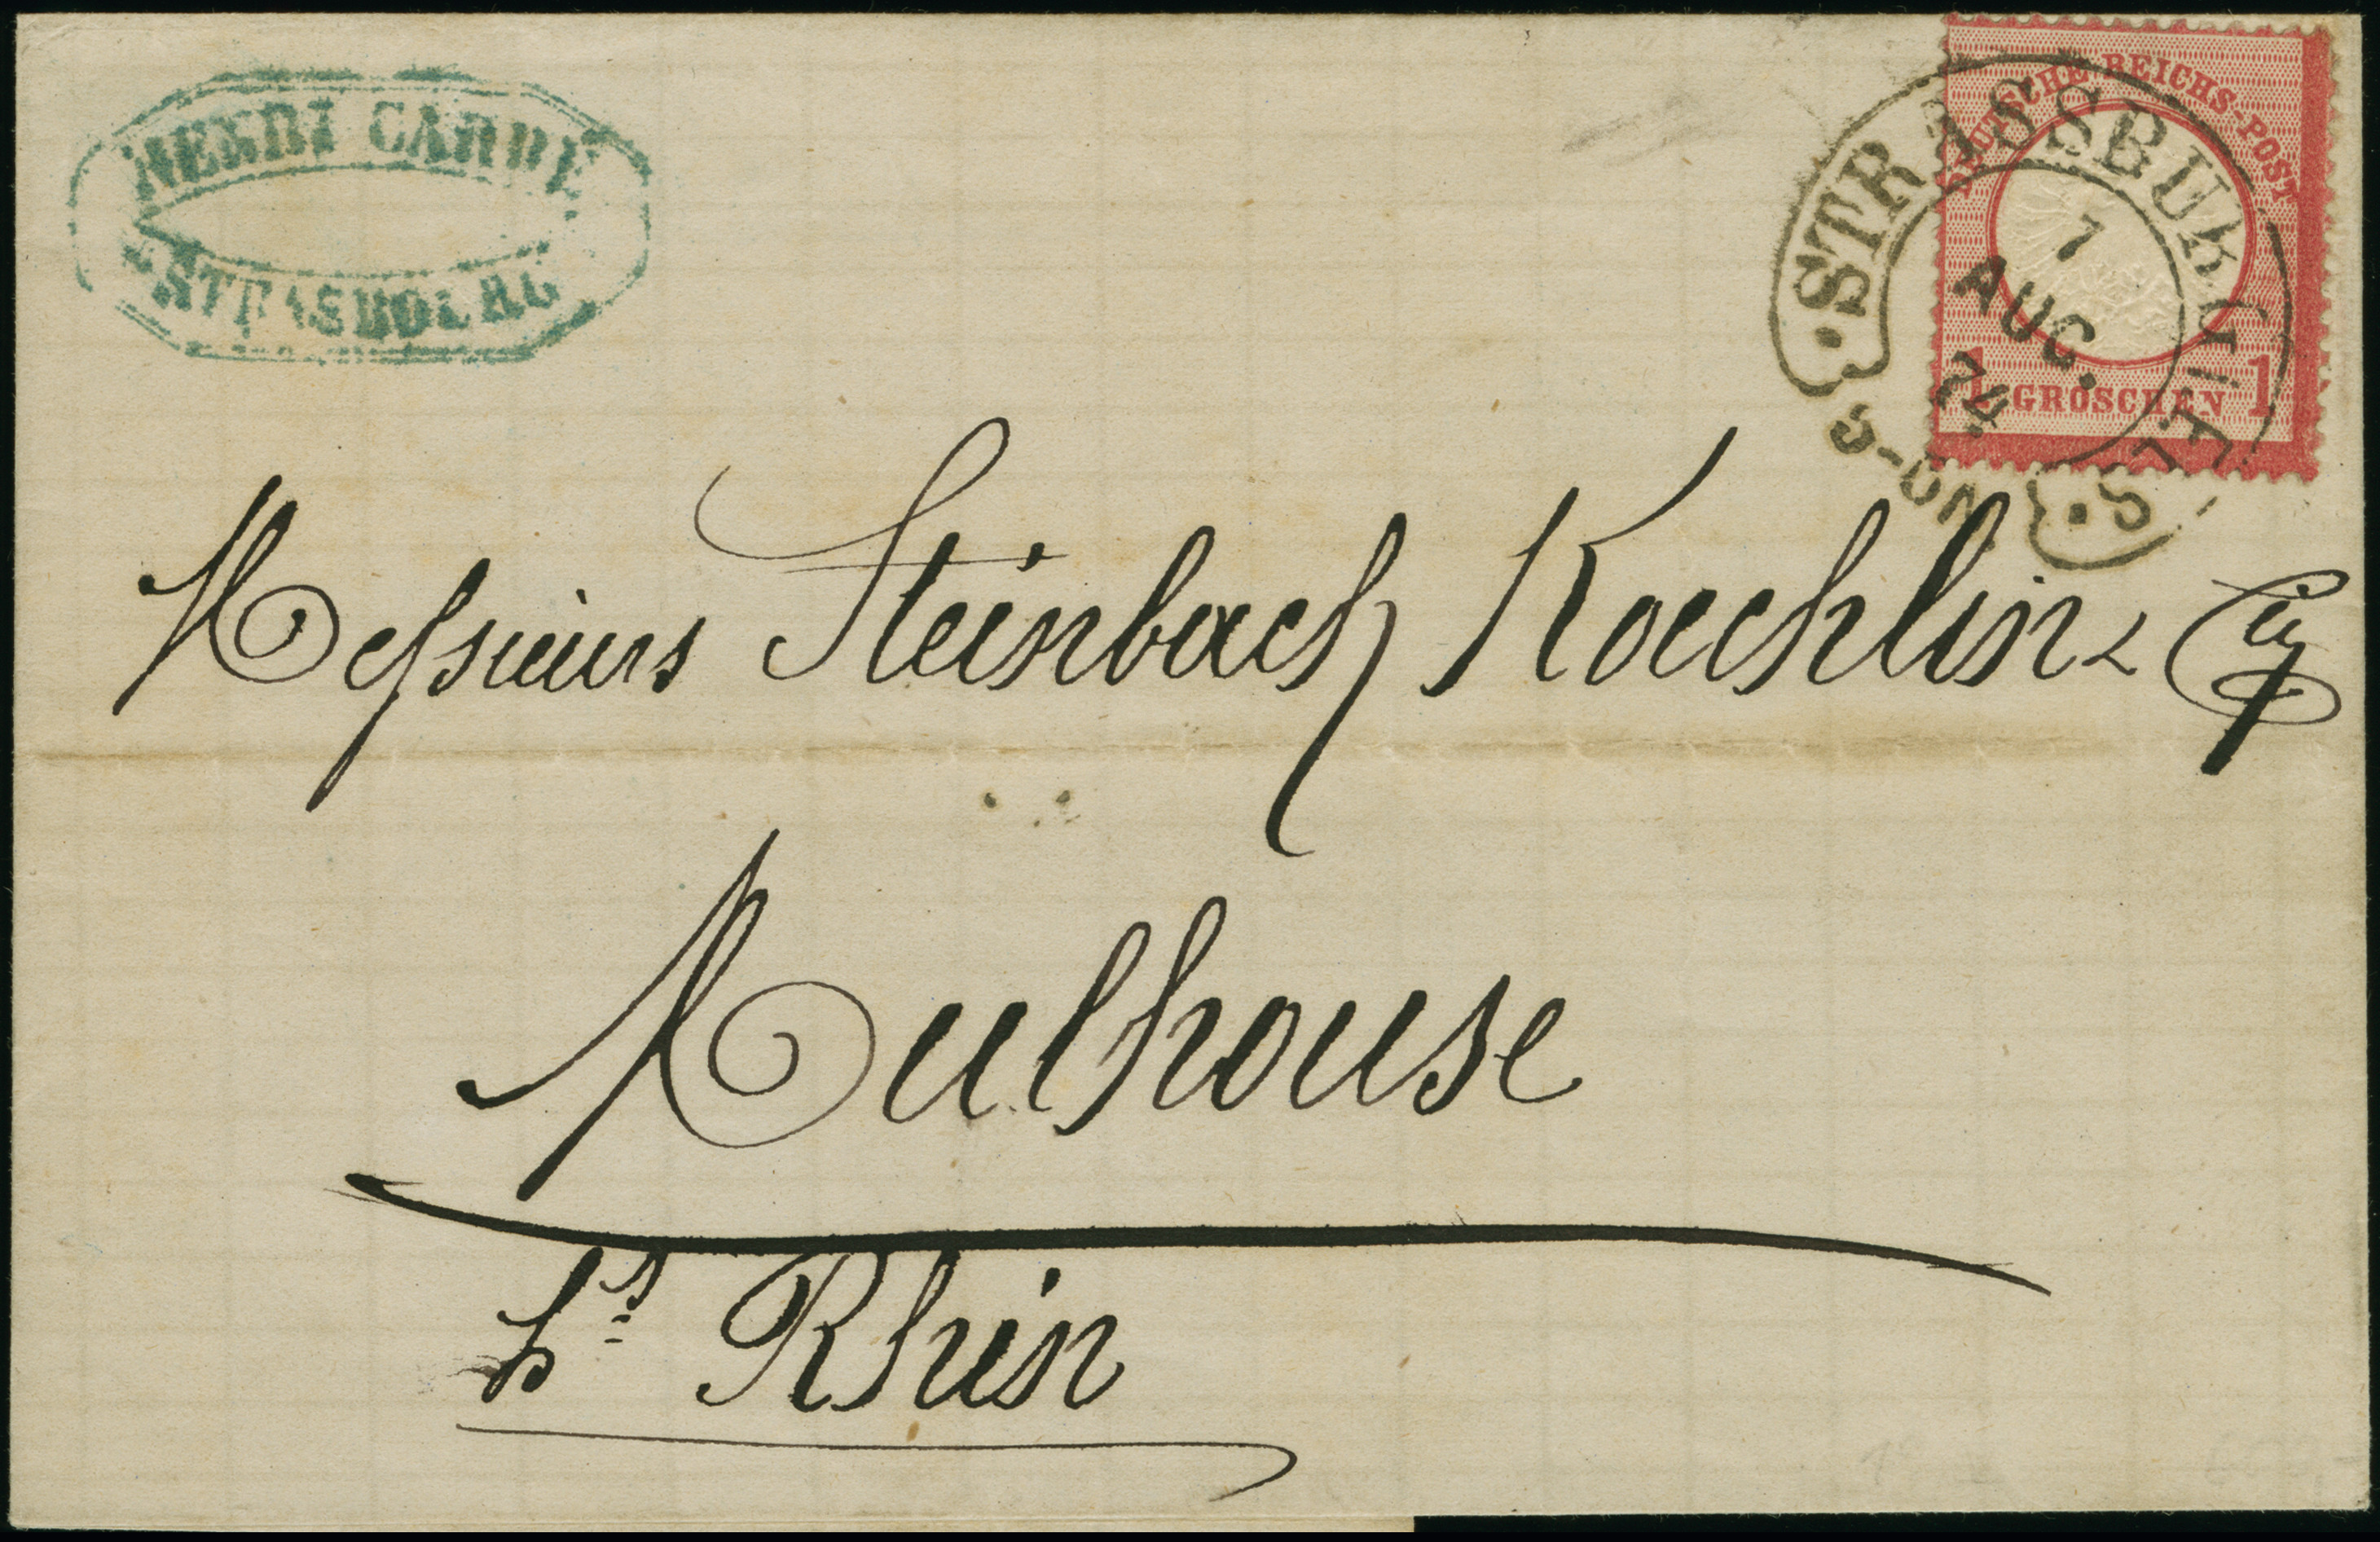 HENRI CARRÉ
STRASBOURG
DEUTSCHE REICHS-POST
1 GROSCHEN 1
STRASSBURG i. ELS.
7
AUG.
74
5-6N.
Messieurs Steinbach Koechlin & Cie
Mulhouse
ht Rhin